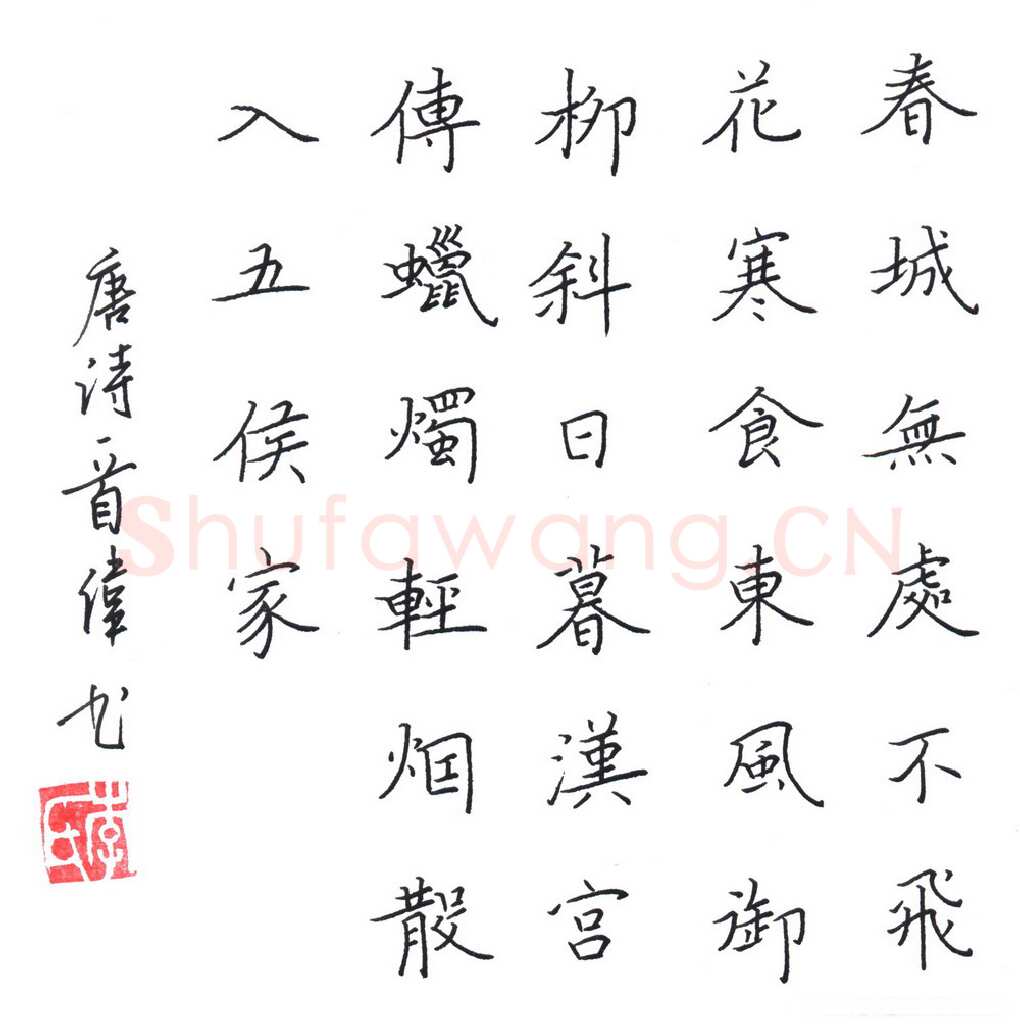 春城無處不飛
花寒食東風御
柳斜日暮漢宮
傳蠟燭輕烟散
入五侯家
唐诗一首偉书
李氏
Shufawang.CN